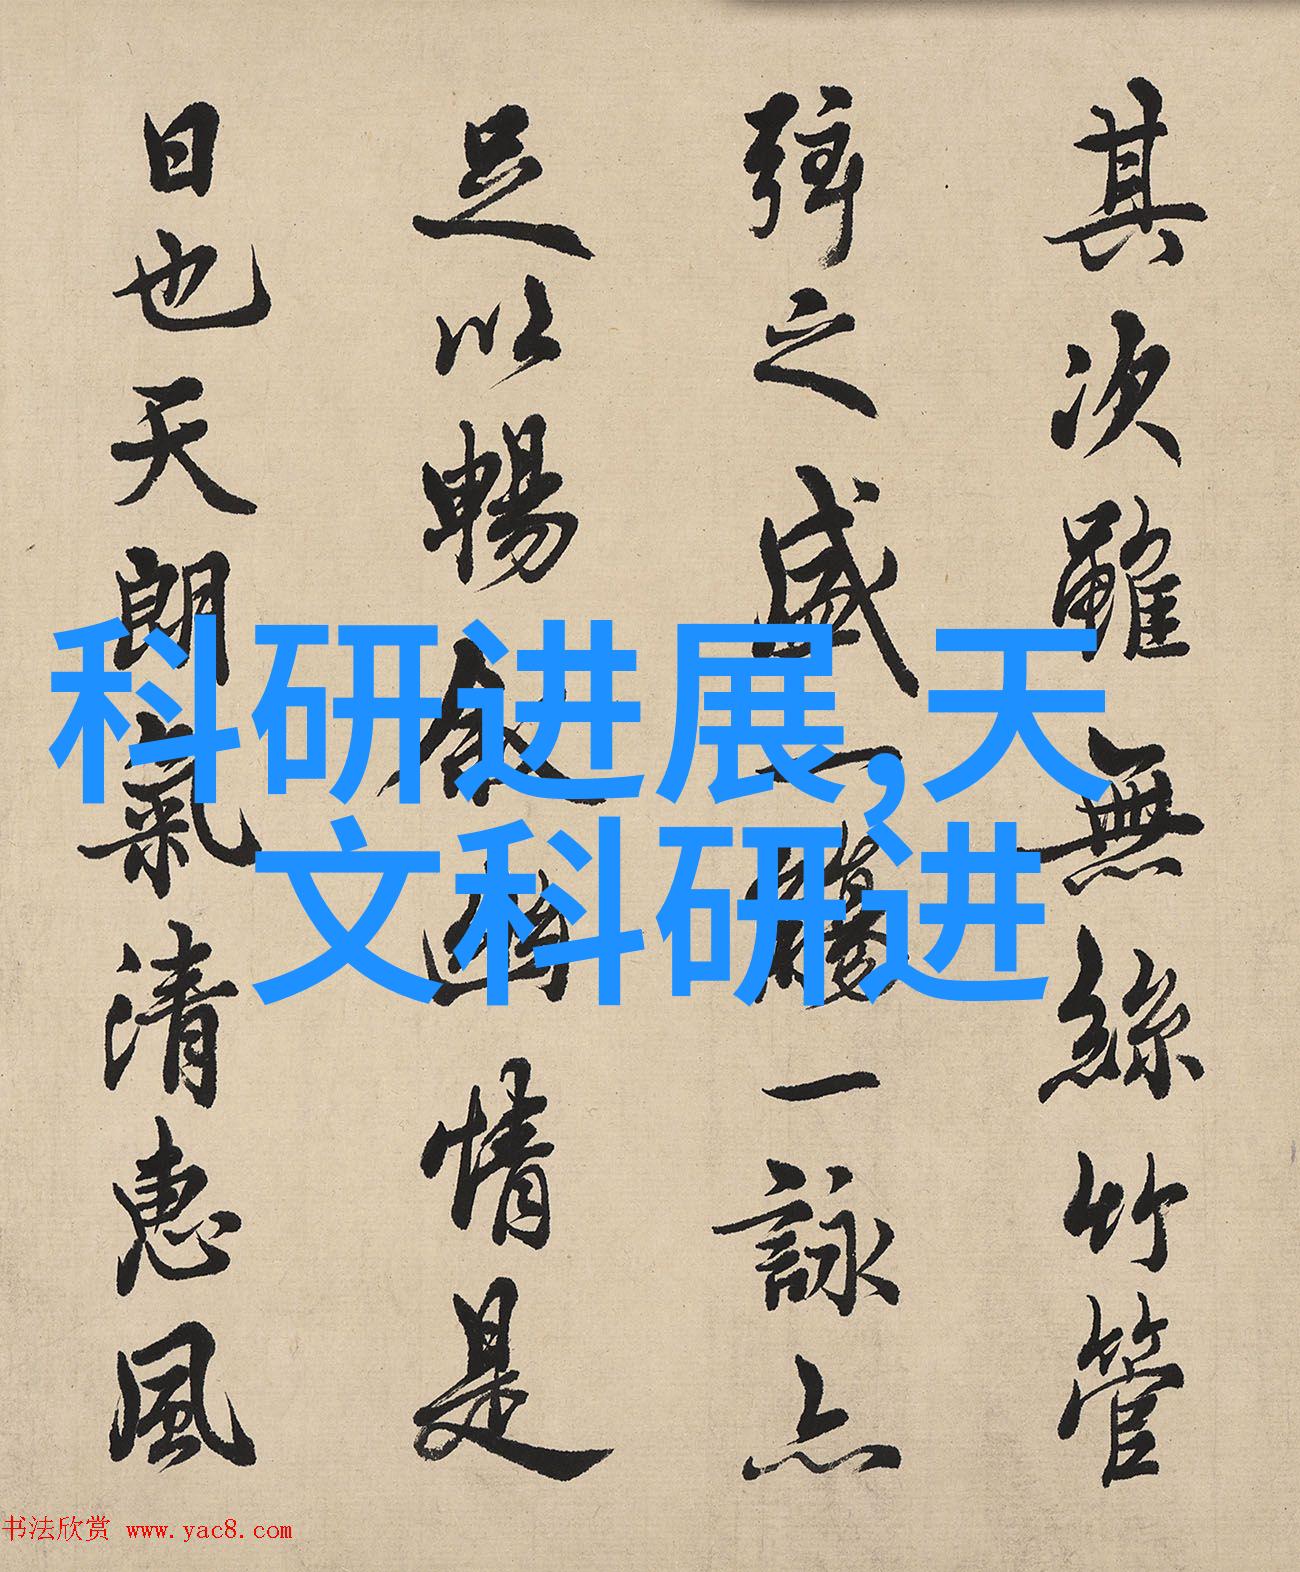 其次雖無絲竹管
弦之盛一觴一詠亦
足以暢敘幽情是
日也天朗氣清惠風
科研进展,天
文科研进
书法欣赏 www.yac8.com